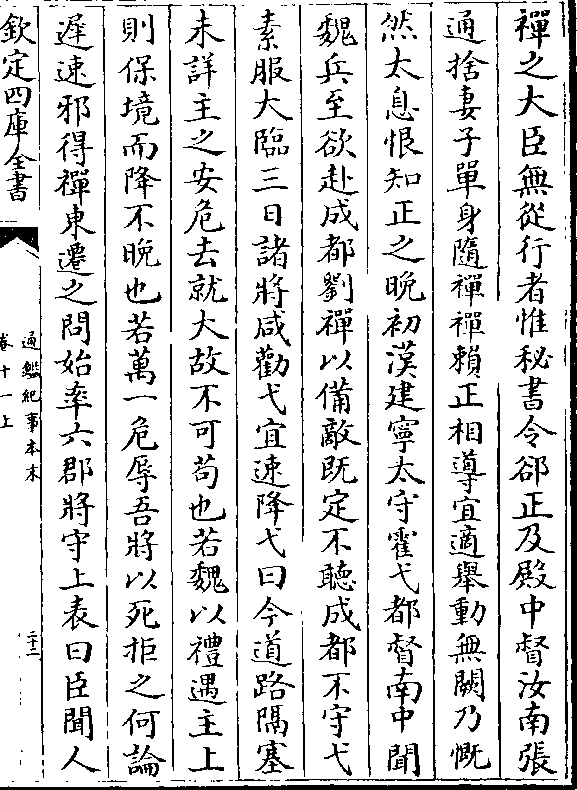 禪之大臣無從行者惟秘書令郤正及殿中督汝南張
通捨妻子單身隨禪禪賴正相導宜適舉動無闕乃慨
然太息恨知正之晚初漢建寧太守霍弋都督南中聞
魏兵至欲赴成都劉禪以備敵既定不聽成都不守弋
素服大臨三日諸將咸勸弋宜速降弋曰今道路隔塞
未詳主之安危去就大故不可苟也若魏以禮遇主上
則保境而降不晚也若萬一危辱吾將以死拒之何論
遲速邪得禪東遷之問始率六郡將守上表曰臣聞人
欽定四庫全書
通鑑紀事本末
卷十一上